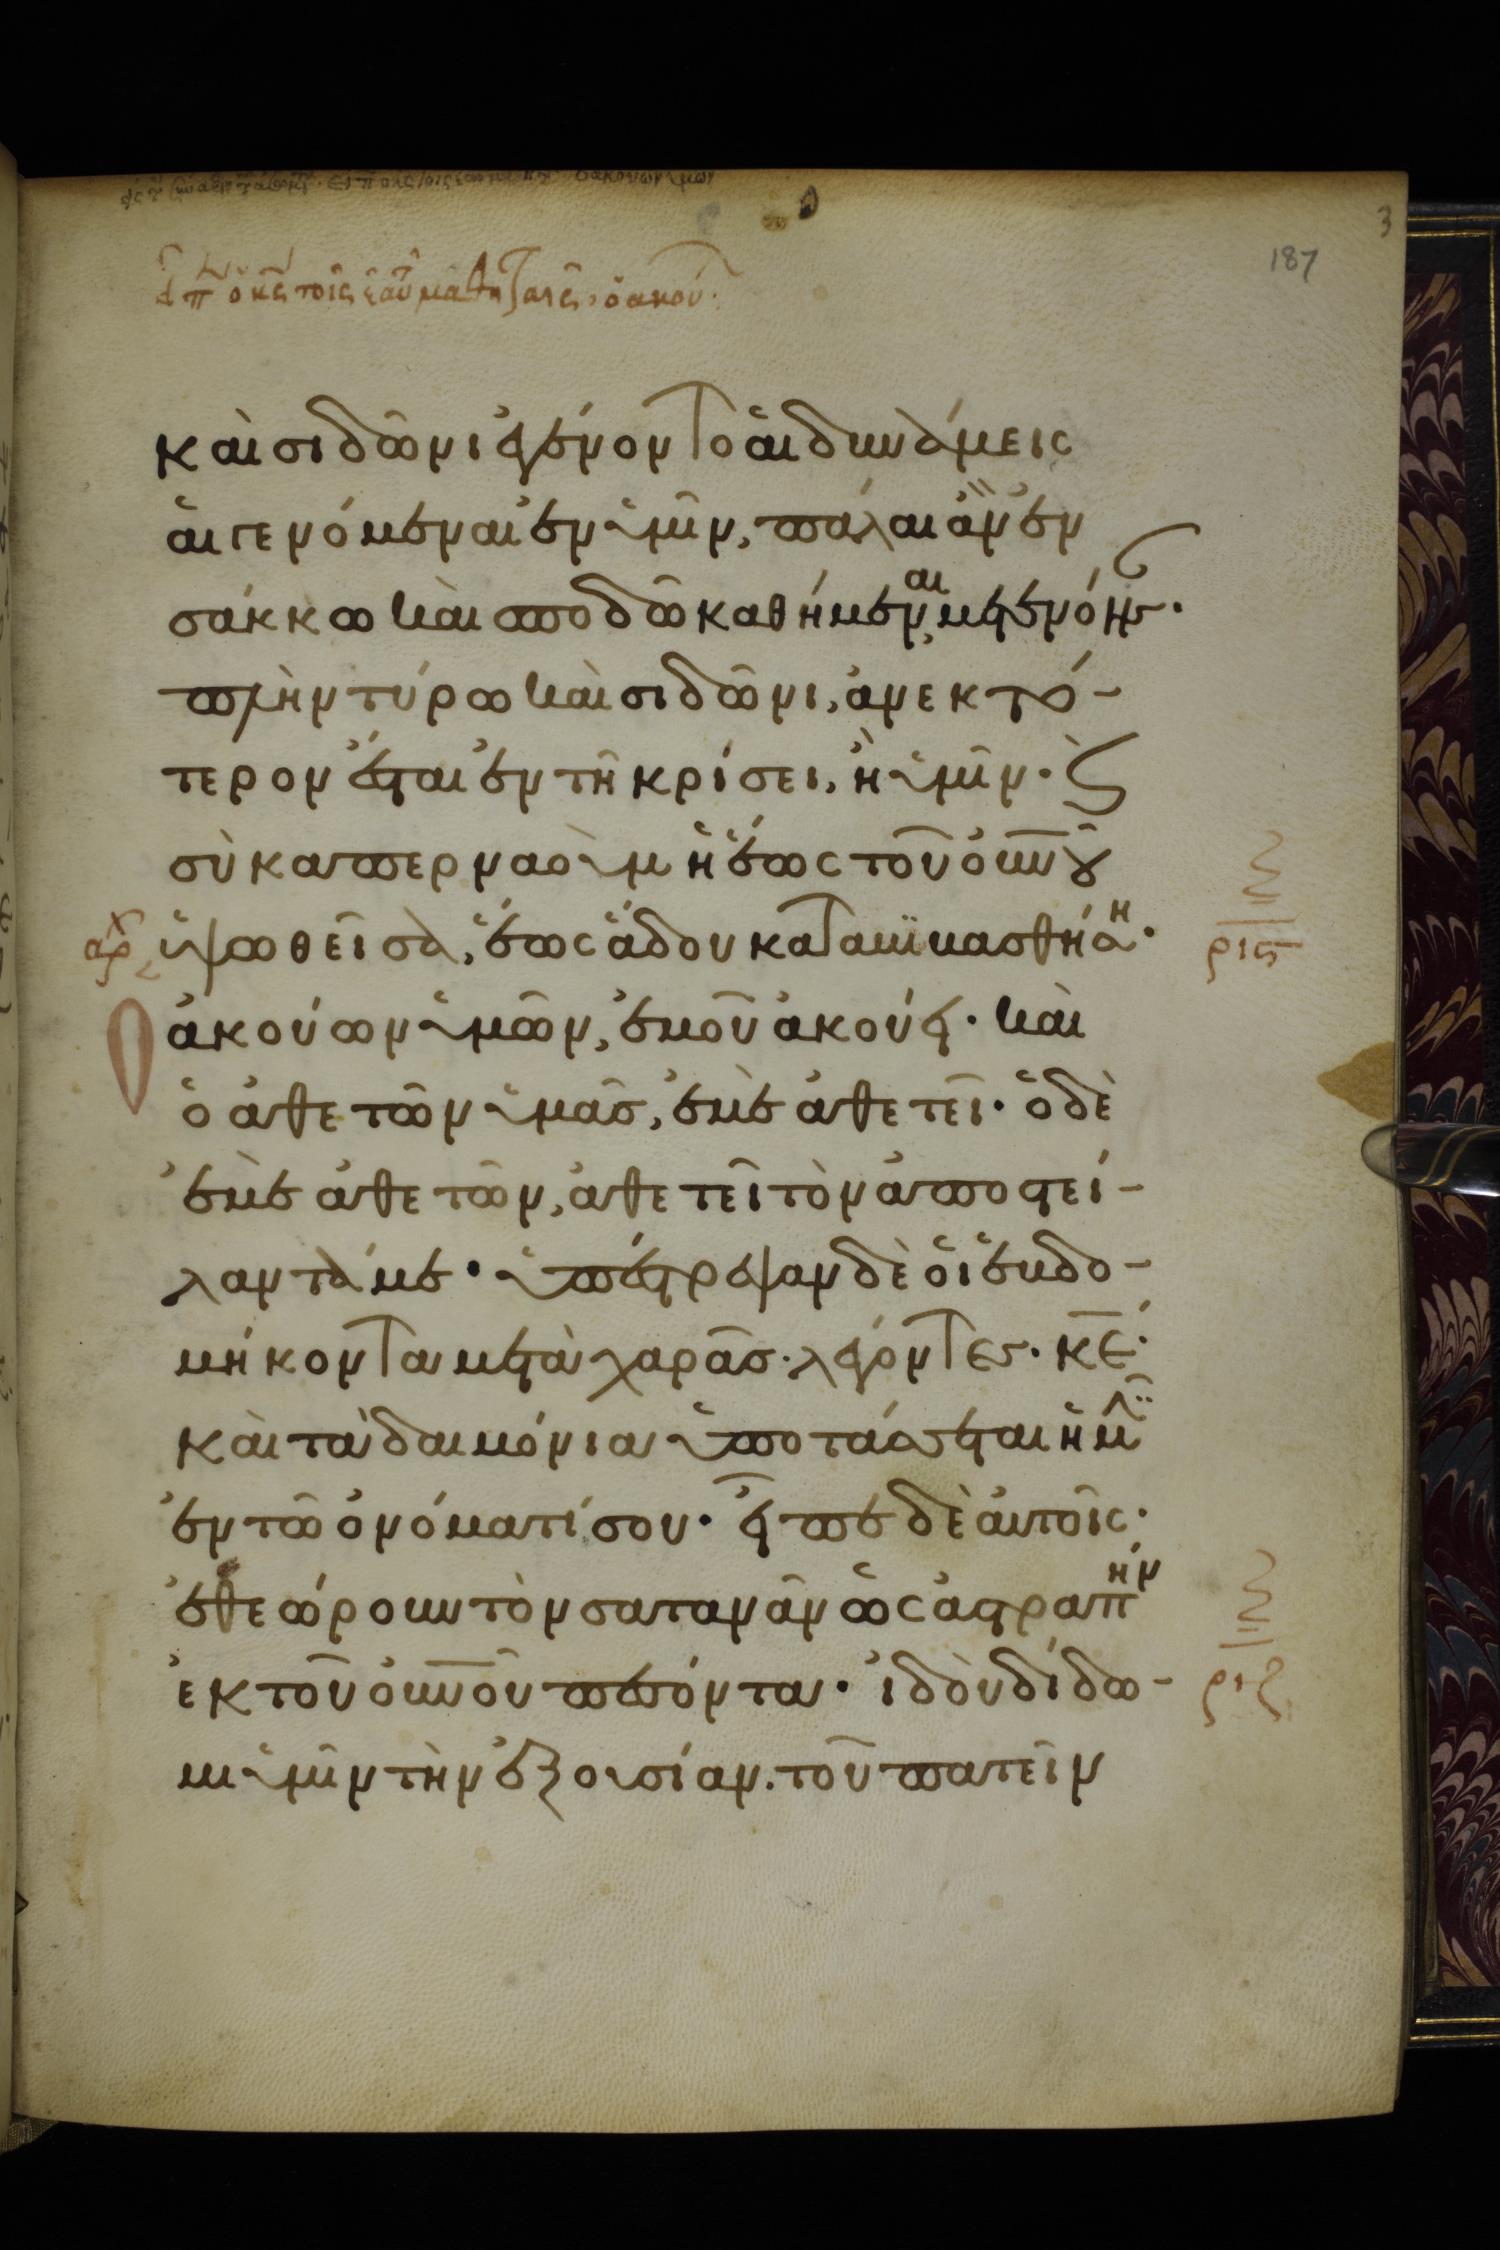 187
3
εἶπ ὁ κς τοῖς ἑαυ μαθηταῖς, ὁ ἀκού
καὶ σιδῶνι ἐγένοντο αἱ δυνάμεις
αἱ γενόμεναι ἐν ὑμῖν, πάλαι ἂν ἐν
σάκκω καὶ σποδῶ καθήμεναι, μετενόησαν·
πλὴν τύρω καὶ σιδῶνι, ἀνεκτό-
τερον ἔσται ἐν τῆ κρίσει, ἢ ὑμῖν· καὶ
σὺ καπερναοὺμ ἡ ἕως τοῦ οὐνοῦ
ὑψωθεῖσα, ἕως ἅδου καταβιβασθήση·
αρχ
ρις
ὁ ἀκούων ὑμῶν, ἐμοῦ ἀκούει· καὶ
ὁ ἀθετῶν ὑμᾶς, ἐμὲ ἀθετεῖ· ὁ δὲ
ἐμὲ ἀθετῶν, ἀθετεῖ τὸν ἀποστεί-
λαντά με· ὑπέστρεψαν δὲ οἱ ἑβδο-
μήκοντα μετὰ χαρᾶς λέγοντες· κε
καὶ τὰ δαιμόνια ὑποτάσσεται ἡμῖν
ἐν τῶ ὀνόματί σου· εἶπε δὲ αὐτοῖς·
ἐθεώρουν τὸν σατανᾶν ὡς ἀστραπὴν
ἐκ τοῦ οὐνοῦ πεσόντα· ἰδοὺ δίδω-
ριζ
μι ὑμῖν τὴν ἐξουσίαν τοῦ πατεῖν